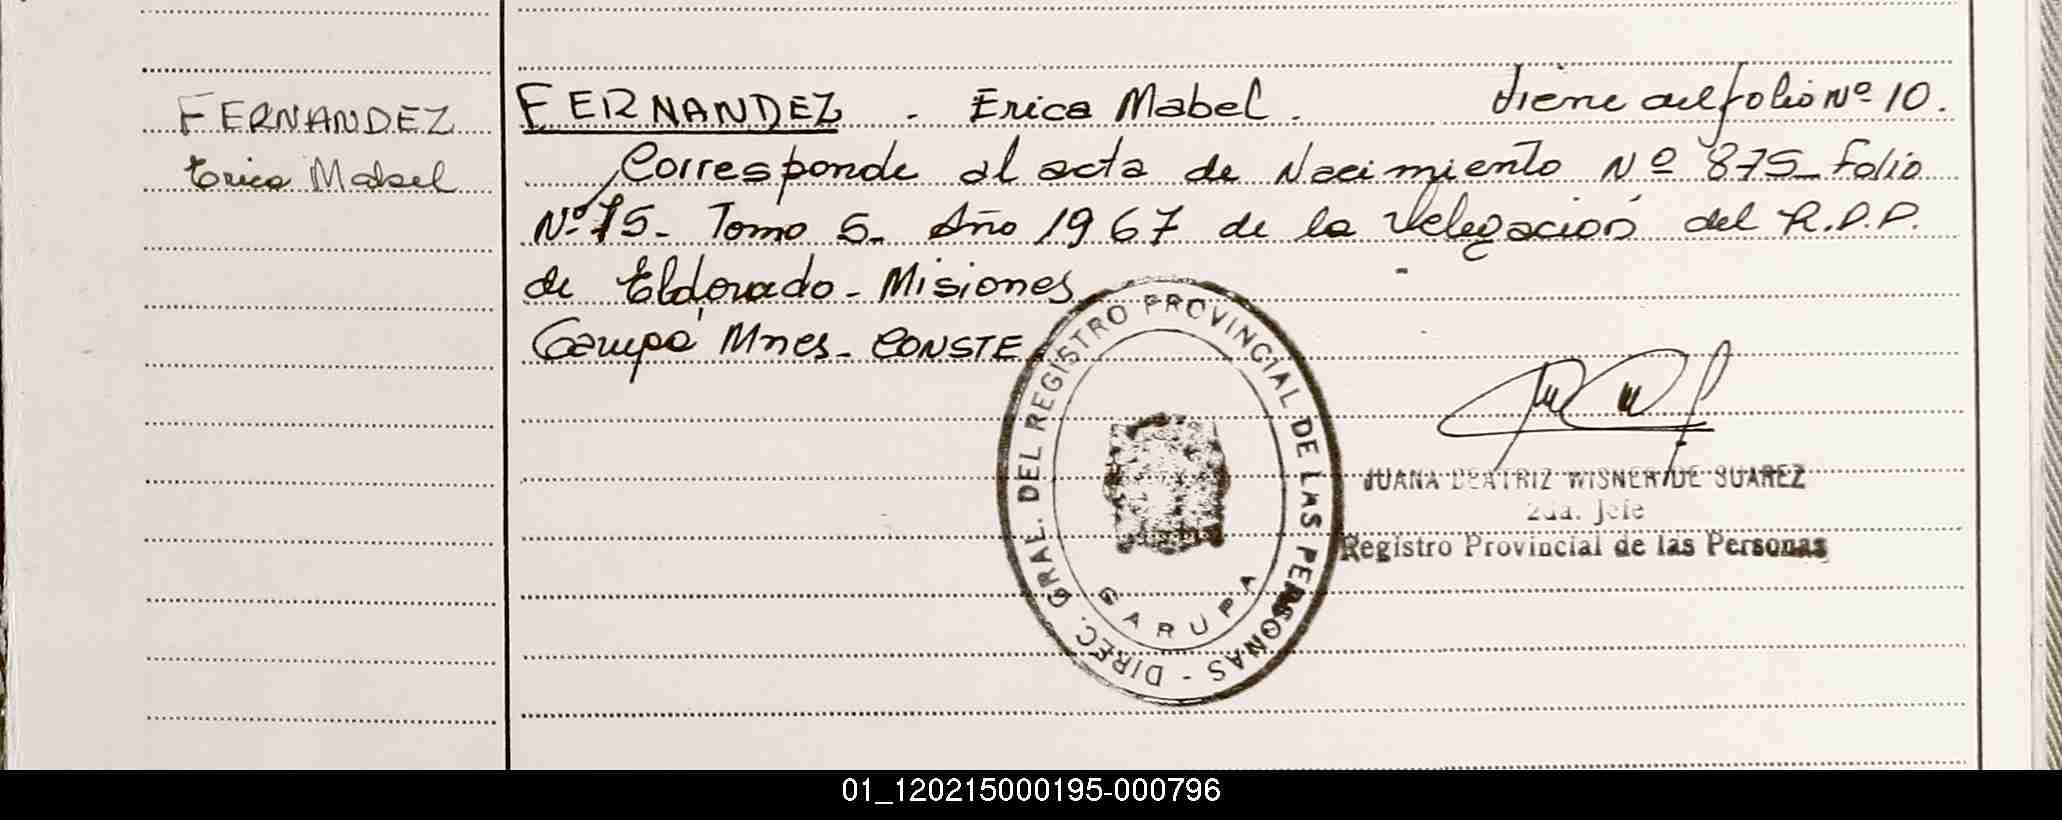 FERNANDEZ
Erica Mabel
FERNANDEZ - Erica Mabel. Viene del folio Nº 10.
Corresponde al acta de Nacimiento Nº 875 - Folio
Nº 75 - Tomo 5 - Año 1967 de la Delegación del R.P.P.
de Eldorado - Misiones
Garupá Mnes - CONSTE
DIREC. GRAL. DEL REGISTRO PROVINCIAL DE LAS PERSONAS -
GARUPA
JUANA BEATRIZ WISNER DE SUAREZ
2da. Jefe
Registro Provincial de las Personas
01_120215000195-000796